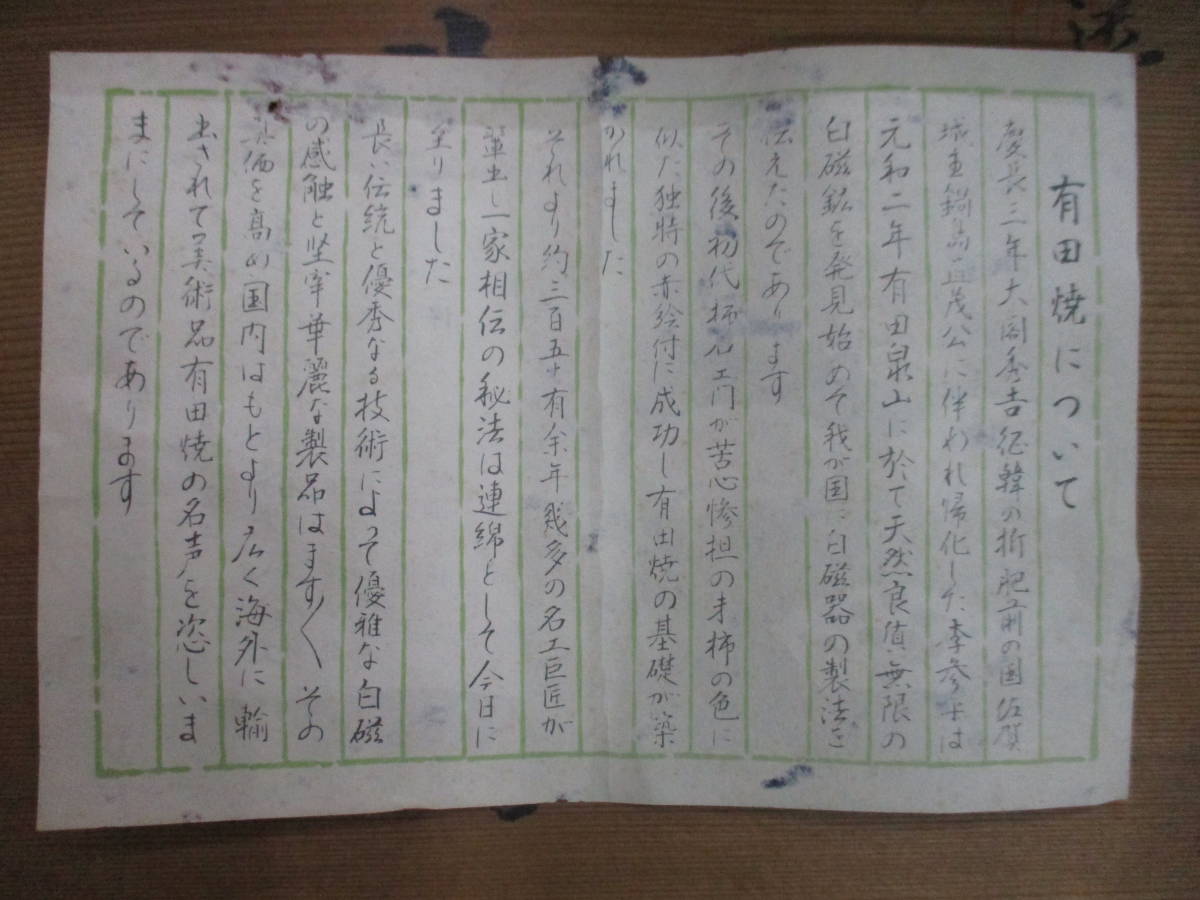 有田焼について
慶長三年大閤秀吉征韓の折肥前の国佐賀
城主鍋島直茂公に伴われ帰化した李参平は
元和二年有田泉山に於て天然良質無限の
白磁鉱を発見始めて我が国に白磁器の製法を
伝えたのであります
その後初代柿右エ門が苦心惨担の末柿の色に
似た独特の赤絵付に成功し有田焼の基礎が築
かれました
それより約三百五十有余年幾多の名工巨匠が
輩出し一家相伝の秘法は連綿として今日に
至りました
長い伝統と優秀なる技術によって優雅な白磁
の感触と堅牢華麗な製品はます〱その
真価を高め国内はもとより広く海外に輸
出されて美術品有田焼の名声を恣しいま
まにしているのであります